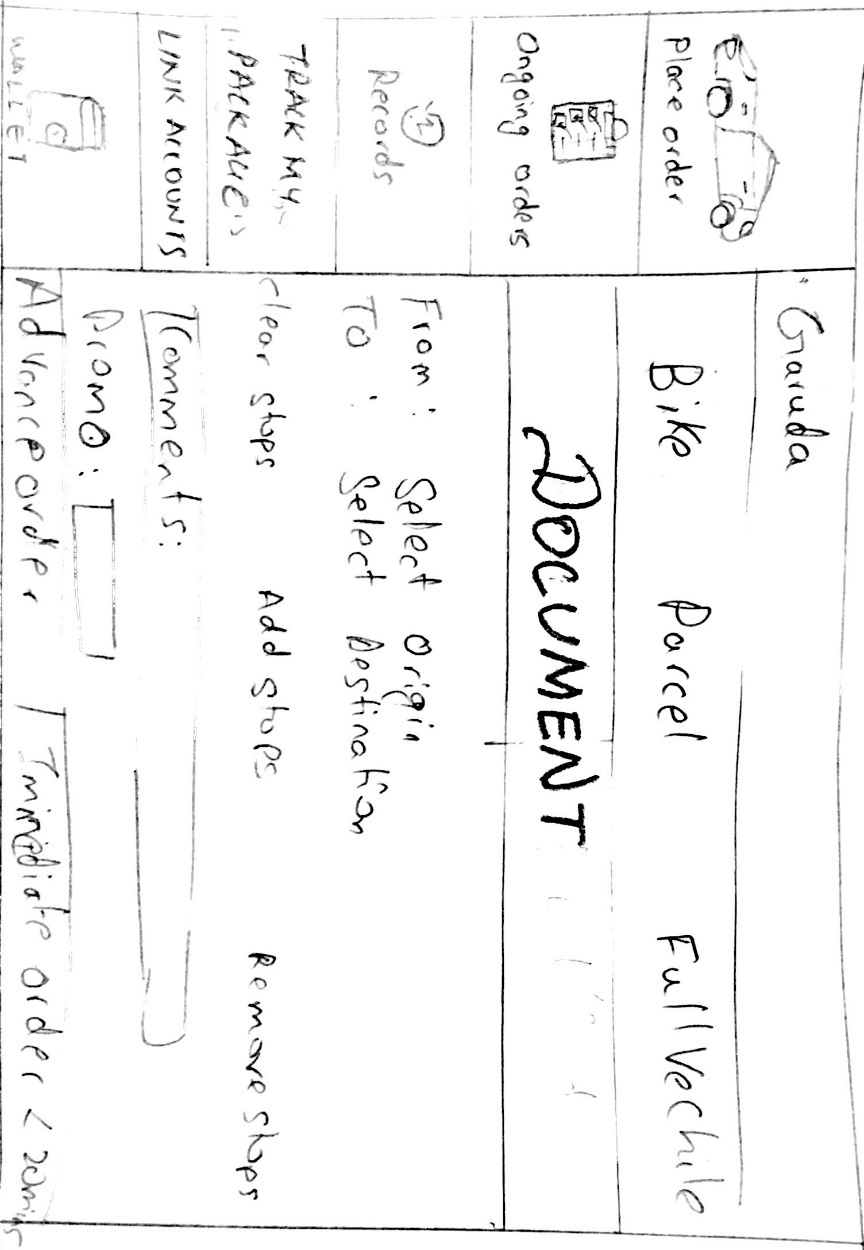 Place order
Ongoing orders
Records
TRACK MY
"PACKAGE"
LINK ACCOUNTS
WALLET
Garuda
Bike Parcel Full Vechile
DOCUMENT
From: Select Origin
To: Select Destination
clear stops Add stops Remove stops
Comments:
Promo:
Advance order Immediate order < 20mins